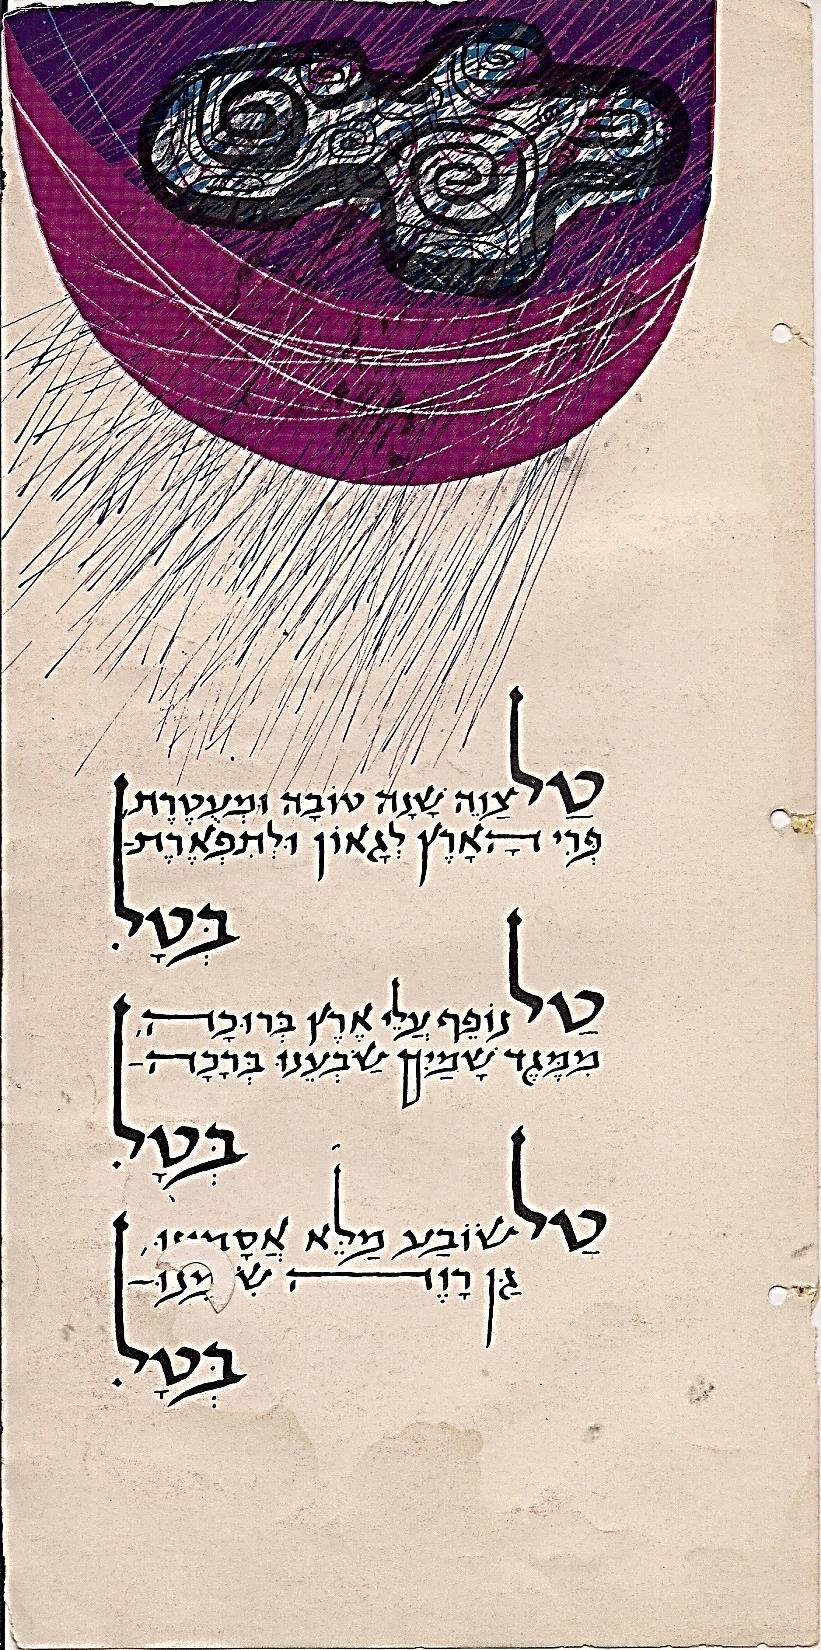 טַל צַוֵּה שָׁנָה טוֹבָה וּמְעֻטֶּרֶת,
פְּרִי הָאָרֶץ לְגָאוֹן וּלְתִפְאֶרֶת-
בְּטָל.
טַל נוֹפֵף עֲלֵי אֶרֶץ בְּרוּכָה,
מִמֶּגֶד שָׁמַיִם שַׂבְּעֵנוּ בְרָכָה-
בְּטָל.
טַל שׂוֹבַע מַלֵּא אֲסָמֵינוּ,
גַּן רָוֶה שִׂ מֵנוּ-
בְּטָל.